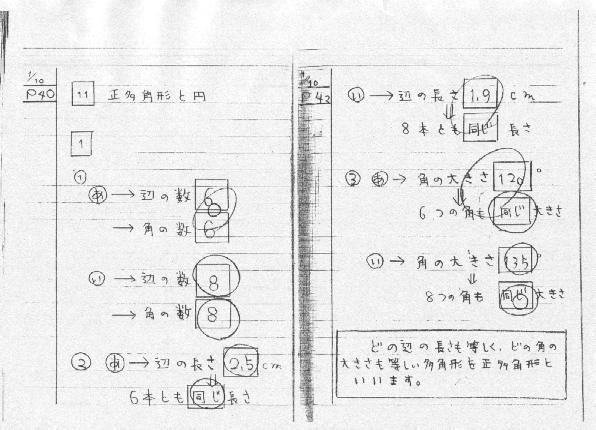 1/10
P40
11 正多角形と円
1
①
あ → 辺の数 6
→ 角の数 6
い → 辺の数 8
→ 角の数 8
② あ → 辺の長さ 2.5 cm
6本とも 同じ 長さ
1/10
P42
い → 辺の長さ 1.9 cm
8本とも 同じ 長さ
③ あ → 角の大きさ 120°
6つの角も 同じ 大きさ
い → 角の大きさ 135°
8つの角も 同じ 大きさ
どの辺の長さも等しく、どの角の
大きさも等しい多角形を正多角形と
いいます。